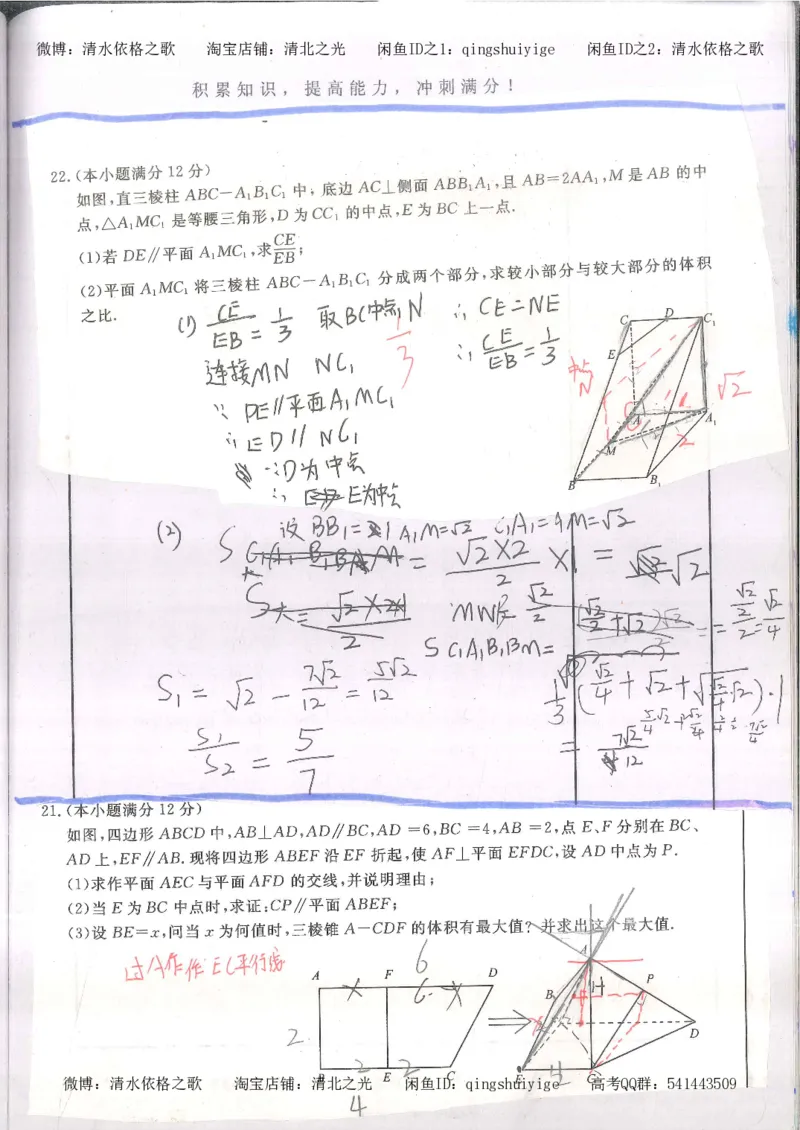 微博：清水依格之歌 淘宝店铺：清北之光 闲鱼ID之1：qingshuiyige 闲鱼ID之2：清水依格之歌
积累知识，提高能力，冲刺满分！
22.(本小题满分12分)
如图,直三棱柱ABC-A₁B₁C₁中,底边AC⊥侧面ABB₁A₁,且AB=2AA₁,M是AB的中
点,△A₁MC₁是等腰三角形,D为CC₁的中点,E为BC上一点.
(1)若DE∥平面A₁MC₁,求CE/EB;
(2)平面A₁MC₁将三棱柱ABC-A₁B₁C₁分成两个部分,求较小部分与较大部分的体积
之比.
(1) CE/EB = 1/3 取BC中点N ∴CE=NE
1/3
连接MN NC₁ ∴CE/EB=1/3
∵DE∥平面A₁MC₁
∴ED∥NC₁
∵D为中点
∴E为中点
C D C₁
E
中点
N
√2
A A₁
2
M
B B₁
(2) 设BB₁=1 A₁M=√2 C₁A₁=AM=√2
S = √2×2/2 ×1 = √2
S大= √2×2×1/2 MN=√2/2
S C₁A₁B₁BM=
1/3(√2/4+√2+ ·1
= 7√2/12
S₁=√2-7√2/12=5√2/12
S₁/S₂=5/7
21.(本小题满分12分)
如图,四边形ABCD中,AB⊥AD,AD∥BC,AD=6,BC=4,AB=2,点E、F分别在BC、
AD上,EF∥AB.现将四边形ABEF沿EF折起,使AF⊥平面EFDC,设AD中点为P.
(1)求作平面AEC与平面AFD的交线,并说明理由;
(2)当E为BC中点时,求证:CP∥平面ABEF;
(3)设BE=x,问当x为何值时,三棱锥A-CDF的体积有最大值?并求出这个最大值.
过A作EC平行线
6
A F D
x 6-x
2
2 2
B E C
4
A
B H P
x
D
E 4 C
微博：清水依格之歌 淘宝店铺：清北之光 闲鱼ID：qingshuiyige 高考QQ群：541443509